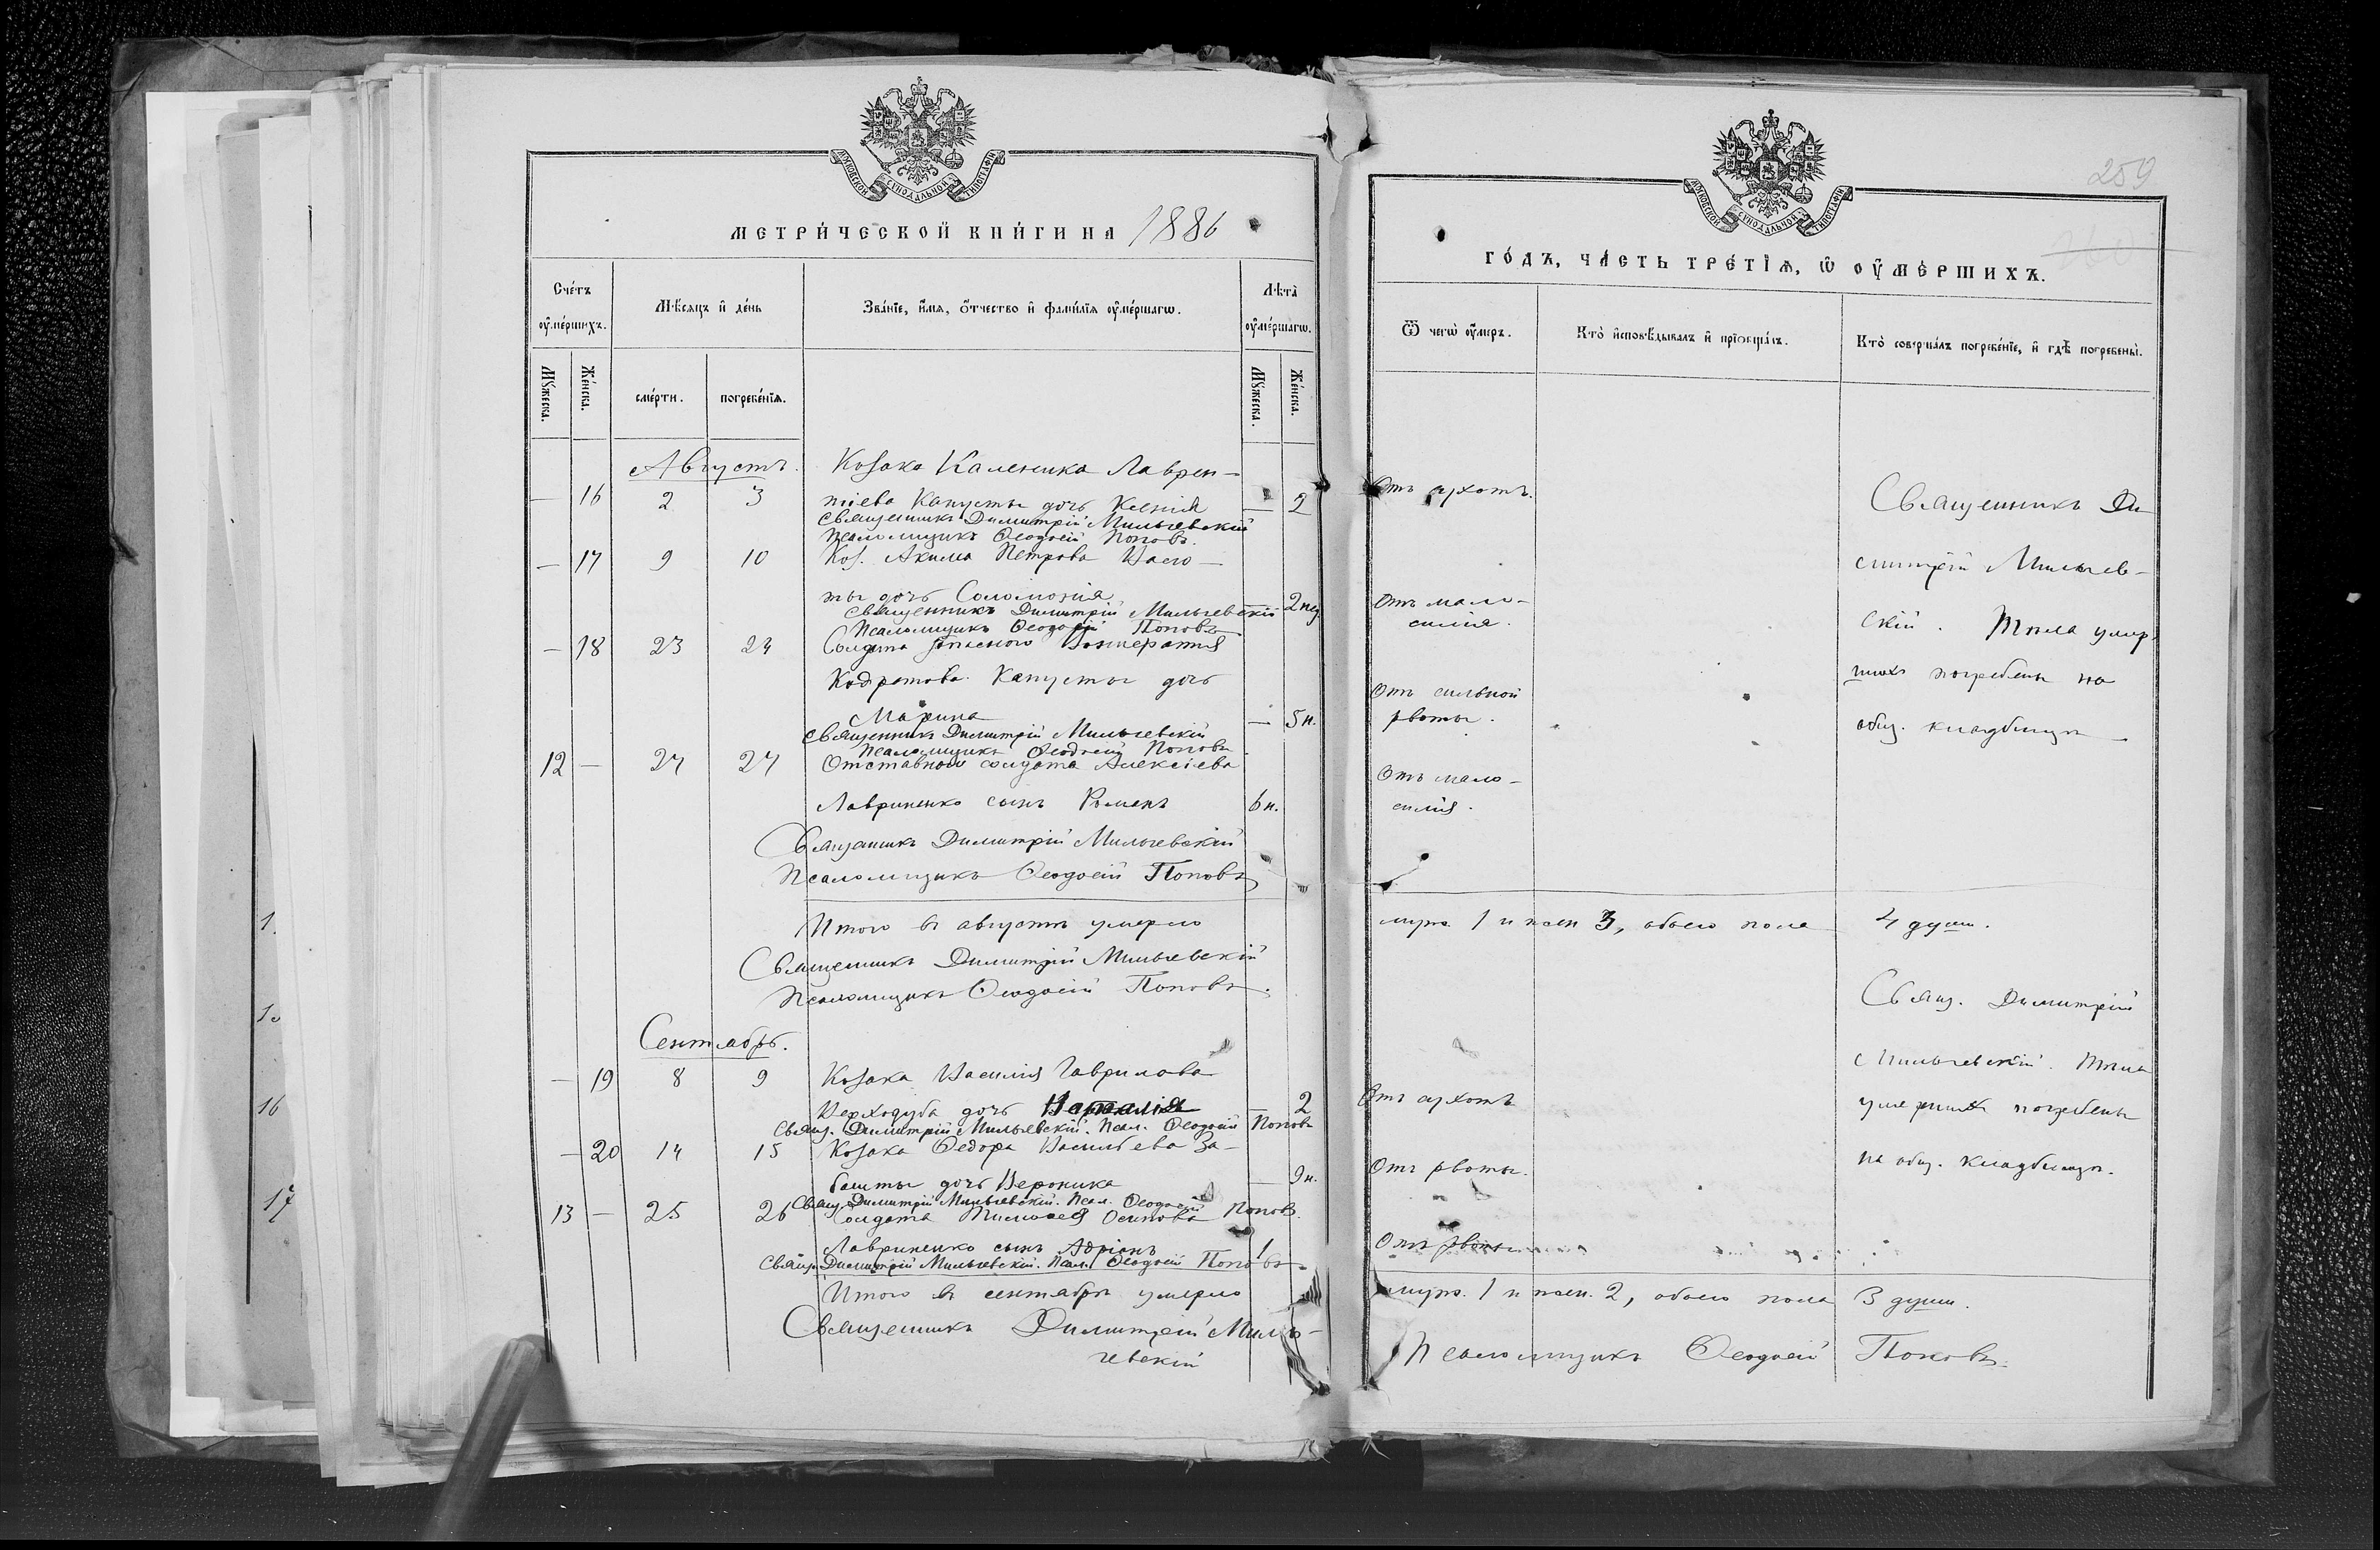 МОСКОВСКОЙ СѴНОДАЛЬНОЙ ТИПОГРАФІИ
МЕТРИ́ЧЕСКОЙ КНИ́ГИ НА 1886
Сче́тъ ᲂу҆ме́ршихъ.
Мѣ́сяцъ и҆ де́нь
Зва́нїе, и҆́мя, ѻ҆́тчество и҆ фами́лїя ᲂу҆ме́ршагѡ.
Лѣта̀ ᲂу҆ме́ршагѡ.
Мꙋ́жеска.
Же́нска.
сме́рти.
погребе́нїя.
Мꙋ́жеска.
Же́нска.
Августъ. Козака Каленика Лаврен-
— 16 2 3 тіева Капусты дочь Ксенія — 2
Священникъ Димитрій Мильчевскій
Псаломщикъ Ѳеодосій Поповъ.
— 17 9 10 Коз. Акима Петрова
ты дочь Соломонія 2 нед.
Священникъ Димитрій Мильчевскій
Псаломщикъ Ѳеодосій Поповъ
— 18 23 24 Солдата запаснаго
Кодратова Капусты дочь
Марина — 5 н.
Священникъ Димитрій Мильчевскій
Псаломщикъ Ѳеодосій Поповъ
12 — 27 27 Отставного солдата Алексіева
Лавриненко сынъ Романъ 6 н.
Священникъ Димитрій Мильчевскій
Псаломщикъ Ѳеодосій Поповъ
Итого въ августѣ умерло
Священникъ Димитрій Мильчевскій
Псаломщикъ Ѳеодосій Поповъ.
Сентябрь.
— 19 8 9 Козака Василія Гаврилова
дочь Наталія — 2
Свящ. Димитрій Мильчевскій. Псал. Ѳеодосій Поповъ
— 20 14 15 Козака Ѳедора Васильева За-
башты дочь Вероника — 9 н.
Свящ. Димитрій Мильчевскій. Псал. Ѳеодосій Поповъ.
13 — 25 26 Солдата Тимоѳея Осипова
Лавриненко сынъ Адріанъ 1
Свящ. Димитрій Мильчевскій. Псал. Ѳеодосій Поповъ
Итого въ сентябрѣ умерло
Священникъ Димитрій Миль-
чевскій
259
МОСКОВСКОЙ СѴНОДАЛЬНОЙ ТИПОГРАФІИ
ГО́ДЪ, ЧА́СТЬ ТРЕ́ТЇѦ, Ѡ҆ ОУ҆МЕ́РШИХЪ.
Ѿ чегѡ̀ ᲂу҆́меръ.
Кто̀ и҆сповѣ́дывалъ и҆ прїѡбща́лъ.
Кто̀ соверша́лъ погребе́нїе, и҆ гдѣ̀ погребены̀.
Отъ сухотъ.
Священникъ Ди
митрій Мильчев-
Отъ мало-
силія.
скій. Тѣла умер
шихъ погребены на
Отъ сильной
рвоты.
общ. кладбищѣ
Отъ мало-
силія.
муж. 1 и жен 3, обоего пола 4 душ.
Свящ. Димитрій
Мильчевскій. Тѣла
Отъ сухотъ
умершихъ погребены
Отъ рвоты.
на общ. кладбищѣ.
Отъ рвоты
муж. 1 и жен. 2, обоего пола 3 душ.
Псаломщикъ Ѳеодосій Поповъ.
1.
16
17